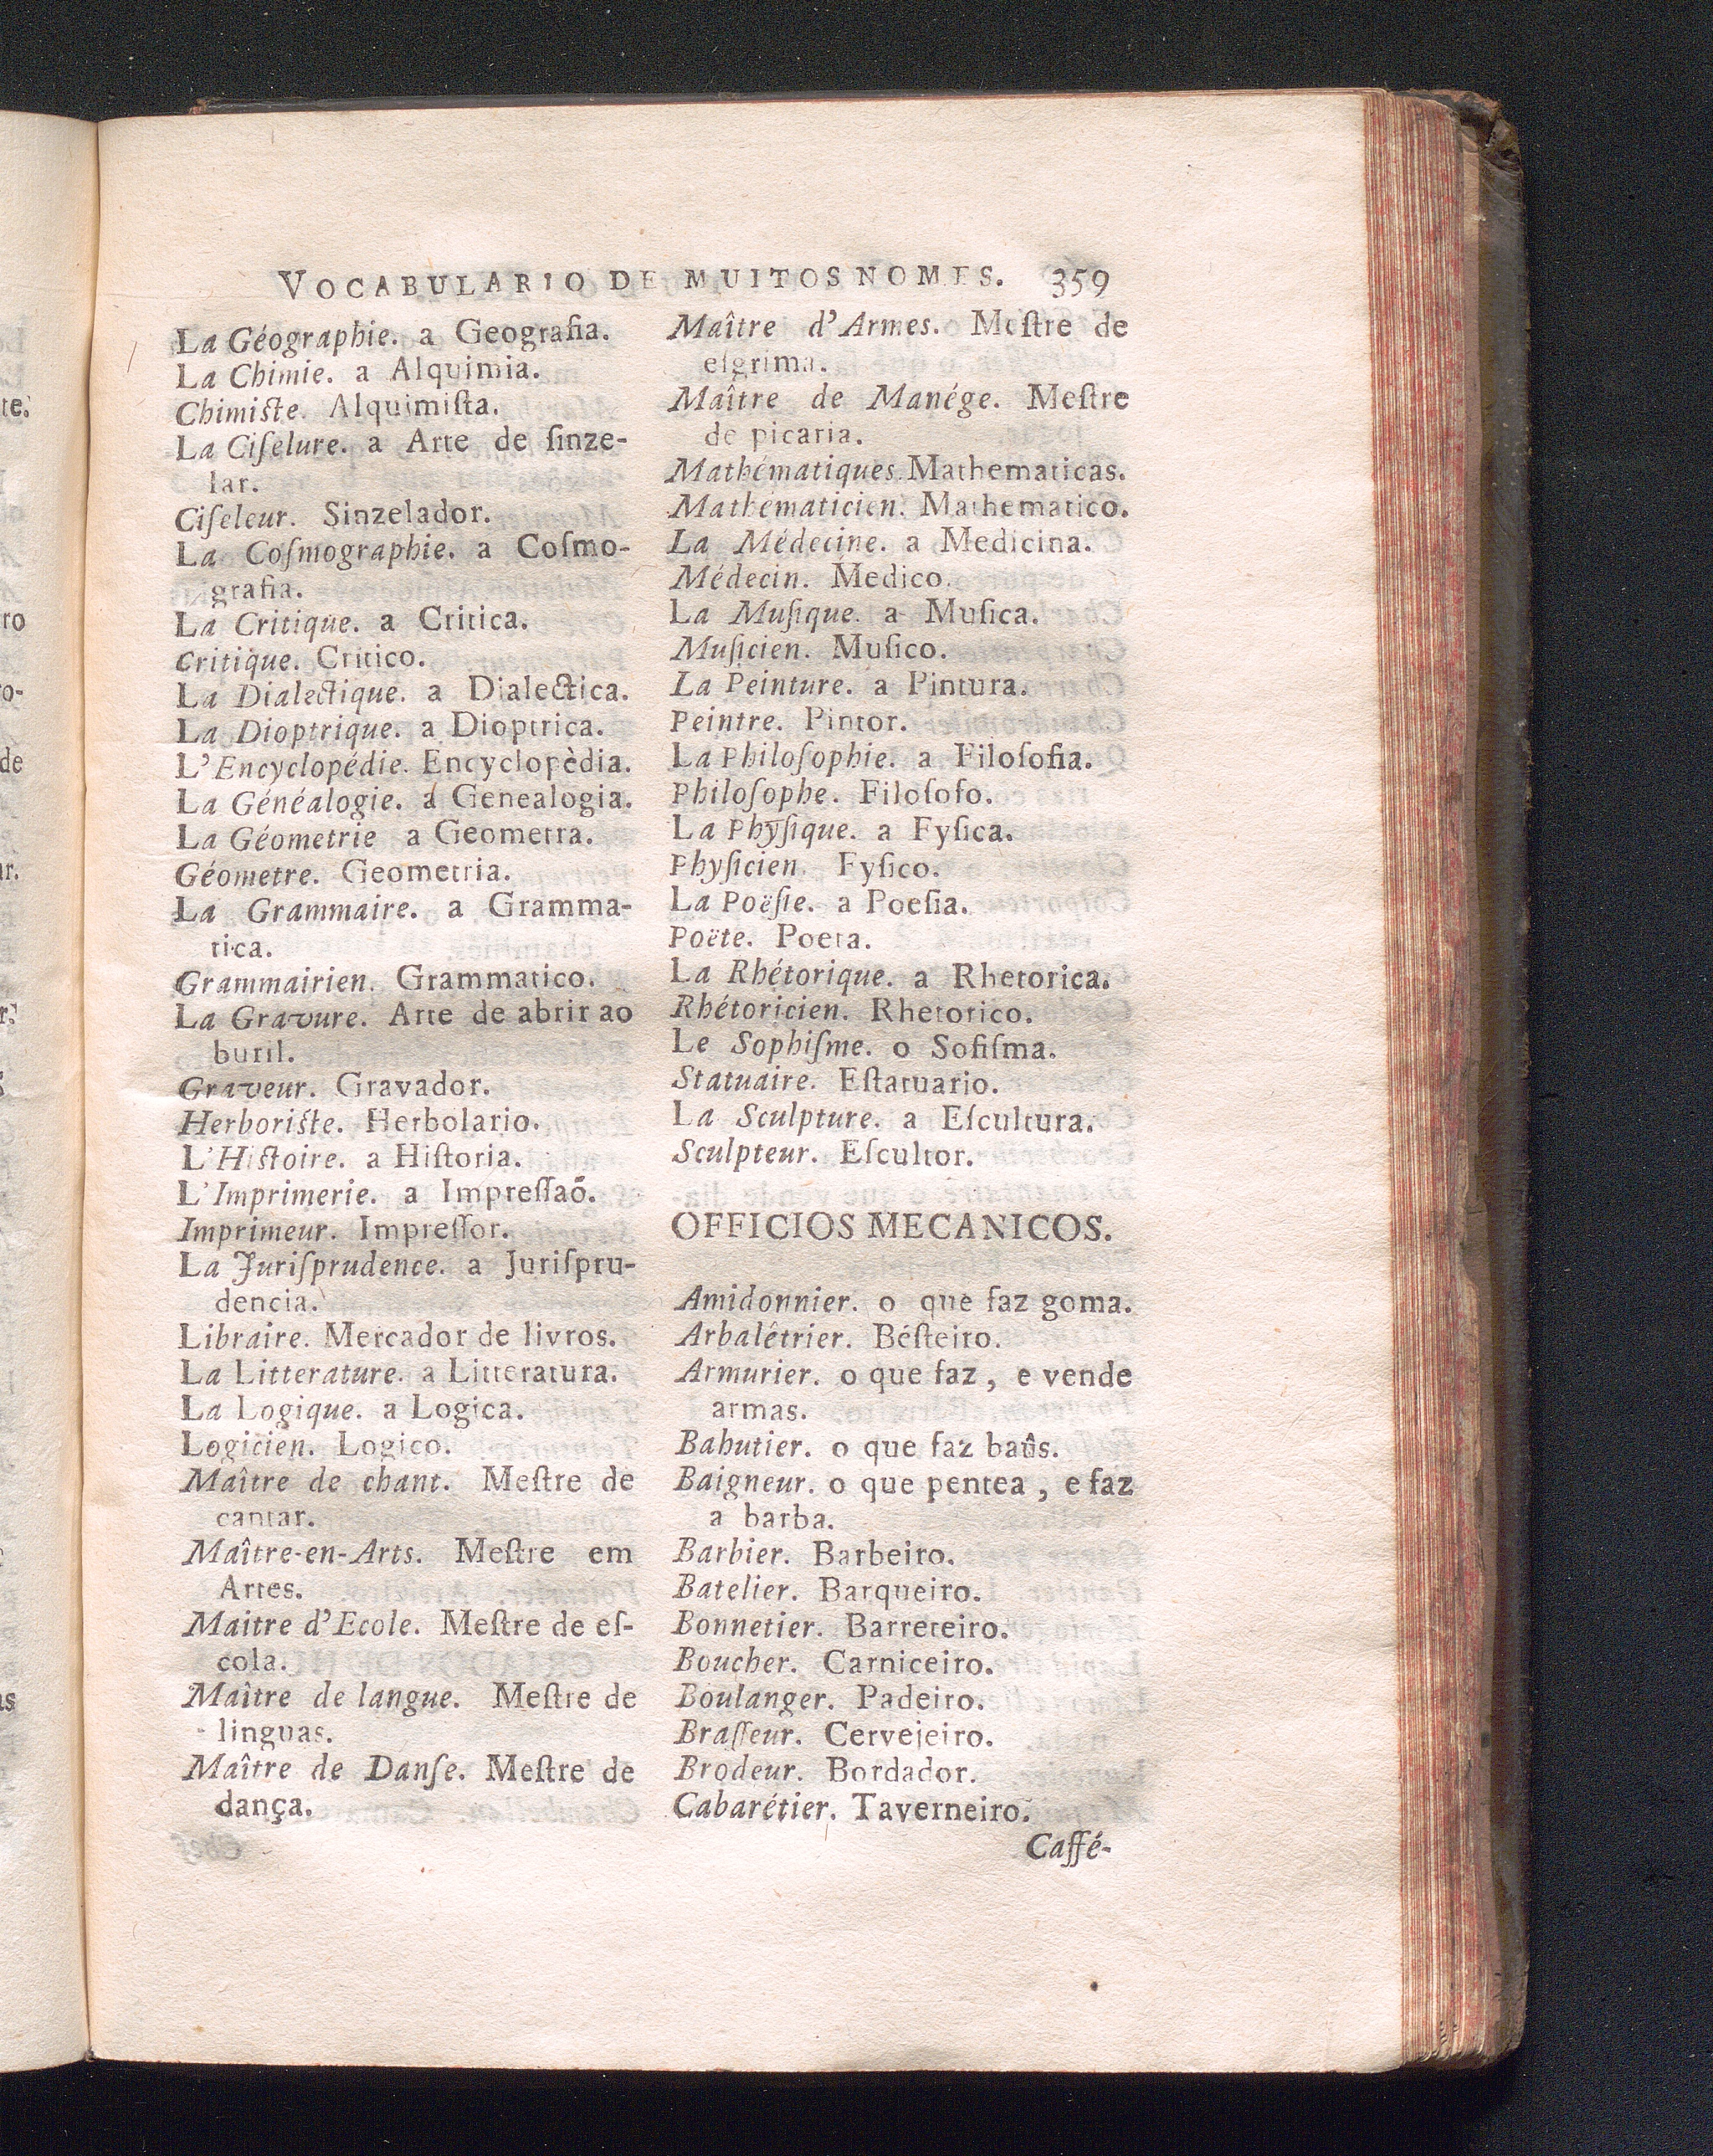 VOCABULARIO DE MUITOS NOMES. 359
La Géographie. a Geografia.
La Chimie. a Alquimia.
Chimiſte. Alquimiſta.
La Ciſelure. a Arte de ſinze-
lar.
Ciſeleur. Sinzelador.
La Coſmographie. a Coſmo-
grafia.
La Critique. a Critica.
Critique. Critico.
La Dialectique. a Dialectica.
La Dioptrique. a Dioptrica.
L'Encyclopédie. Encyclopèdia.
La Généalogie. a Genealogia.
La Géometrie a Geometra.
Géometre. Geometria.
La Grammaire. a Gramma-
tica.
Grammairien. Grammatico.
La Gravure. Arte de abrir ao
buril.
Graveur. Gravador.
Herboriſte. Herbolario.
L'Hiſtoire. a Hiſtoria.
L'Imprimerie. a Impreſſaõ.
Imprimeur. Impreſſor.
La Juriſprudence. a Juriſpru-
dencia.
Libraire. Mercador de livros.
La Litterature. a Litteratura.
La Logique. a Logica.
Logicien. Logico.
Maître de chant. Meſtre de
cantar.
Maître-en-Arts. Meſtre em
Artes.
Maitre d'Ecole. Meſtre de eſ-
cola.
Maître de langue. Meſtre de
linguas.
Maître de Danſe. Meſtre de
dança.
Maître d'Armes. Meſtre de
eſgrima.
Maître de Manége. Meſtre
de picaria.
Mathématiques. Mathematicas.
Mathématicien. Mathematico.
La Médecine. a Medicina.
Médecin. Medico.
La Muſique. a Muſica.
Muſicien. Muſico.
La Peinture. a Pintura.
Peintre. Pintor.
La Philoſophie. a Filoſofia.
Philoſophe. Filoſofo.
La Phyſique. a Fyſica.
Phyſicien. Fyſico.
La Poëſie. a Poeſia.
Poëte. Poeta.
La Rhétorique. a Rhetorica.
Rhétoricien. Rhetorico.
Le Sophiſme. o Sofiſma.
Statuaire. Eſtatuario.
La Sculpture. a Eſcultura.
Sculpteur. Eſcultor.
OFFICIOS MECANICOS.
Amidonnier. o que faz goma.
Arbalêtrier. Béſteiro.
Armurier. o que faz, e vende
armas.
Bahutier. o que faz baûs.
Baigneur. o que pentea, e faz
a barba.
Barbier. Barbeiro.
Batelier. Barqueiro.
Bonnetier. Barreteiro.
Boucher. Carniceiro.
Boulanger. Padeiro.
Braſſeur. Cervejeiro.
Brodeur. Bordador.
Cabarétier. Taverneiro.
Caffé-